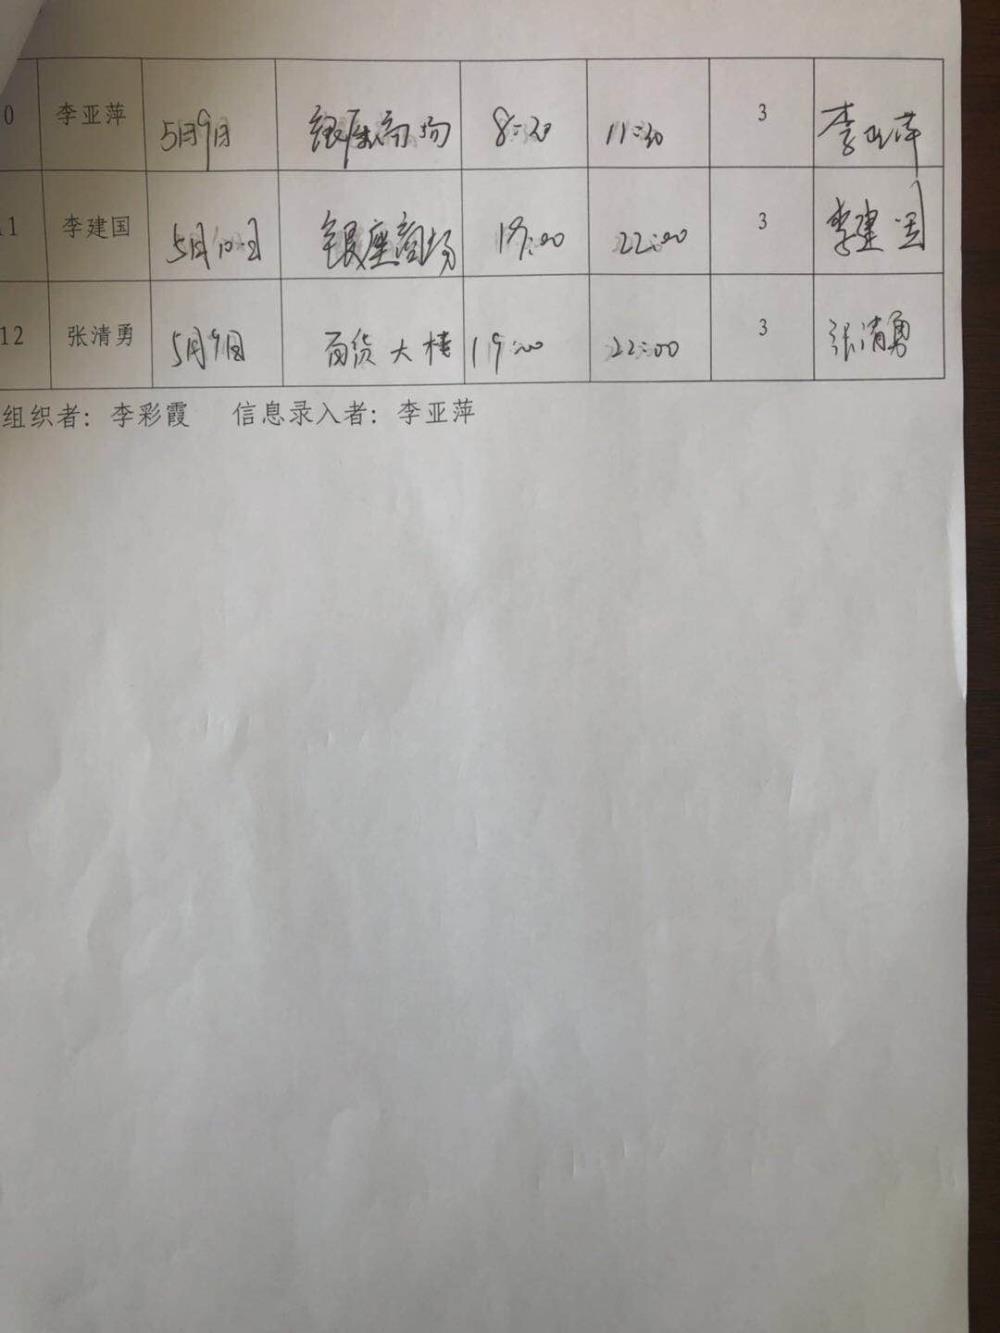 0 李亚萍 5月9日 银座商场 8:30 11:30 3 李亚萍
11 李建国 5月10日 银座商场 19:00 22:00 3 李建国
12 张清勇 5月9日 百货大楼 19:00 22:00 3 张清勇
组织者：李彩霞 信息录入者：李亚萍